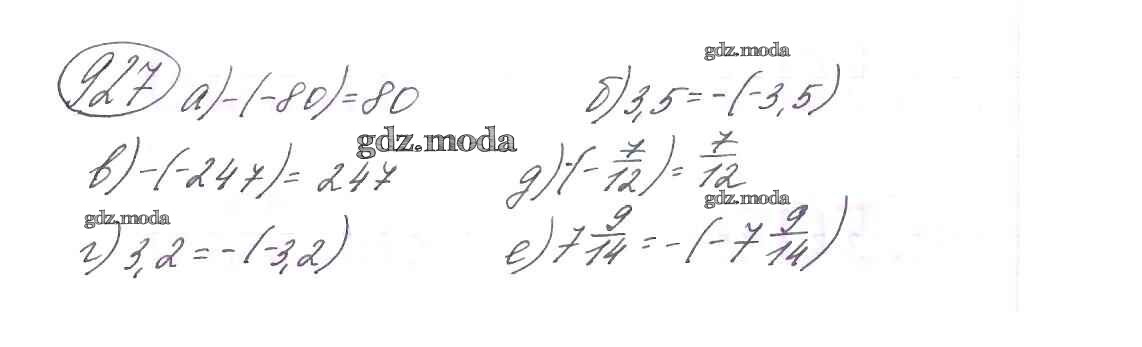 gdz.moda
927 а) -(-80) = 80 б) 3,5 = -(-3,5)
gdz.moda
в) -(-247) = 247 д) -(-7/12) = 7/12
gdz.moda gdz.moda
г) 3,2 = -(-3,2) е) 7 9/14 = -(-7 9/14)